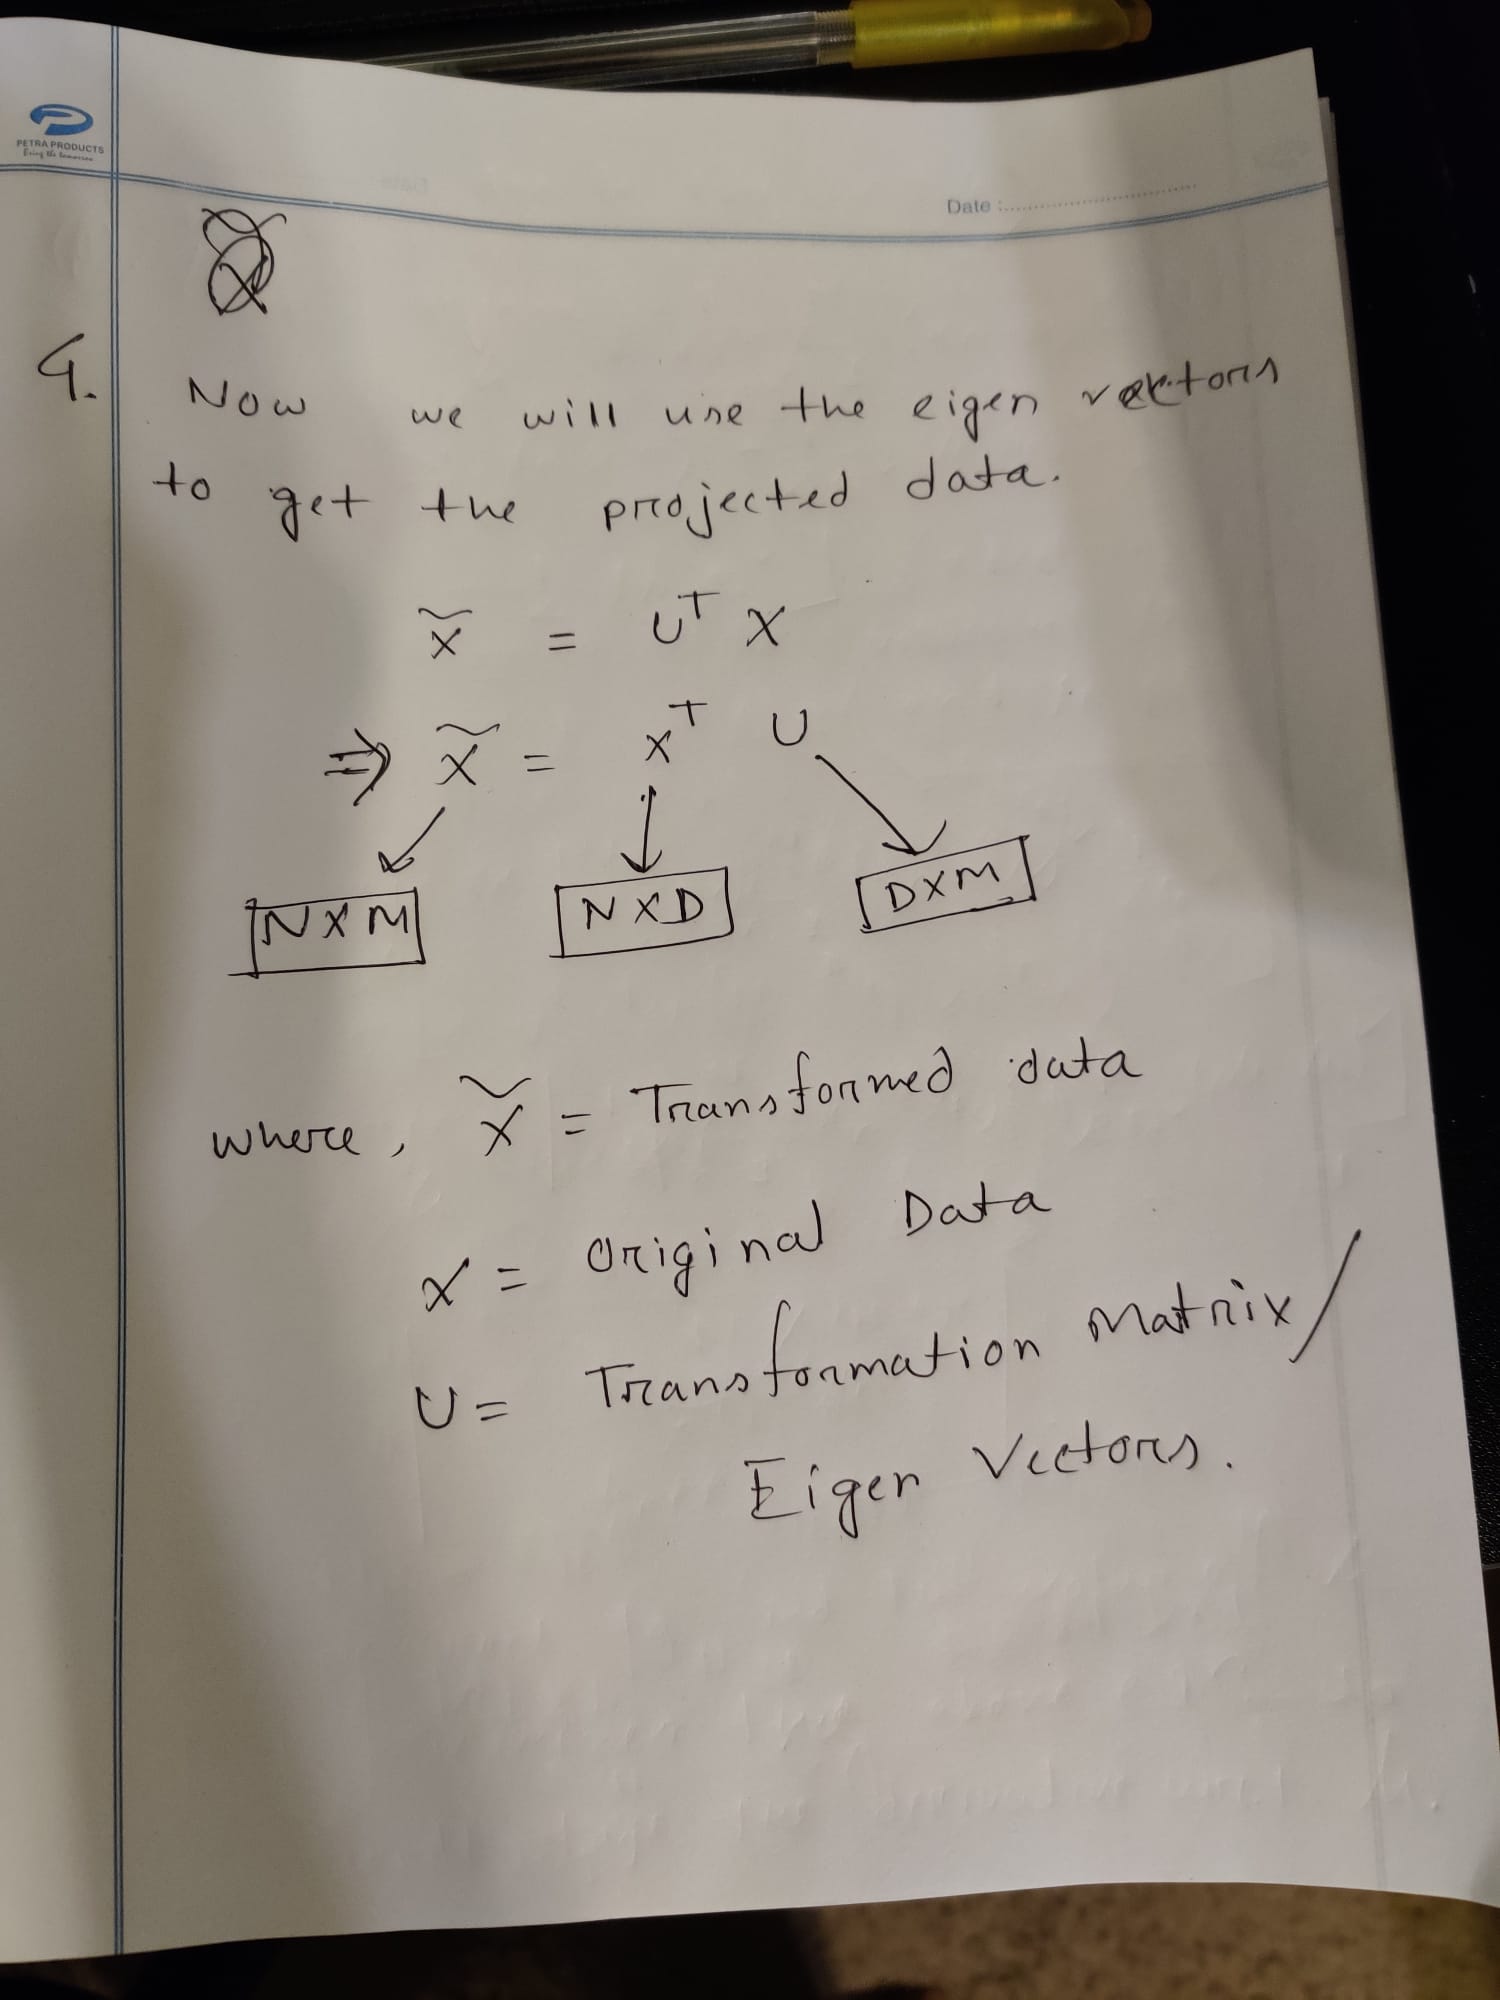 PETRA PRODUCTS
Date :
4. Now we will use the eigen vectors
to get the projected data.
x̃ = U^T X
⇒ x̃ = x^T U
N X M N X D D X M
where, x̃ = Transformed data
x = Original Data
U = Transformation Matrix/
Eigen Vectors.